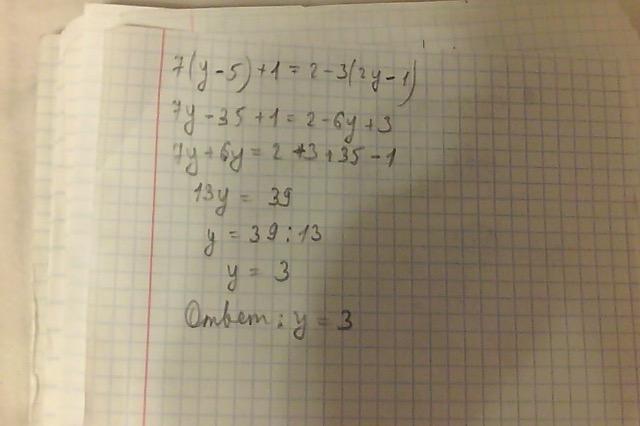 7(y-5)+1=2-3(2y-1)
7y-35+1=2-6y+3
7y+6y=2+3+35-1
13y=39
y=39:13
y=3
Ответ: y=3